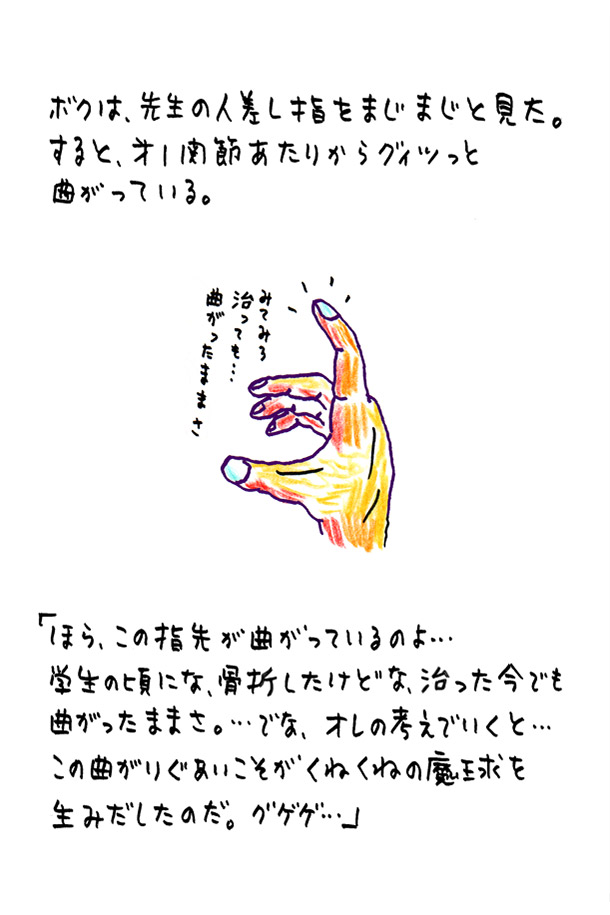 ボクは、先生の人差し指をまじまじと見た。
すると、才1関節あたりからグィツっと
曲がっている。
みてみろ
治っても…
曲がったままさ
「ほら、この指先が曲がっているのよ…
学生の頃にな、骨折したけどな、治った今でも
曲がったままさ。…でな、オレの考えでいくと…
この曲がりぐあいこそがくねくねの魔球を
生みだしたのだ。グゲゲ…」